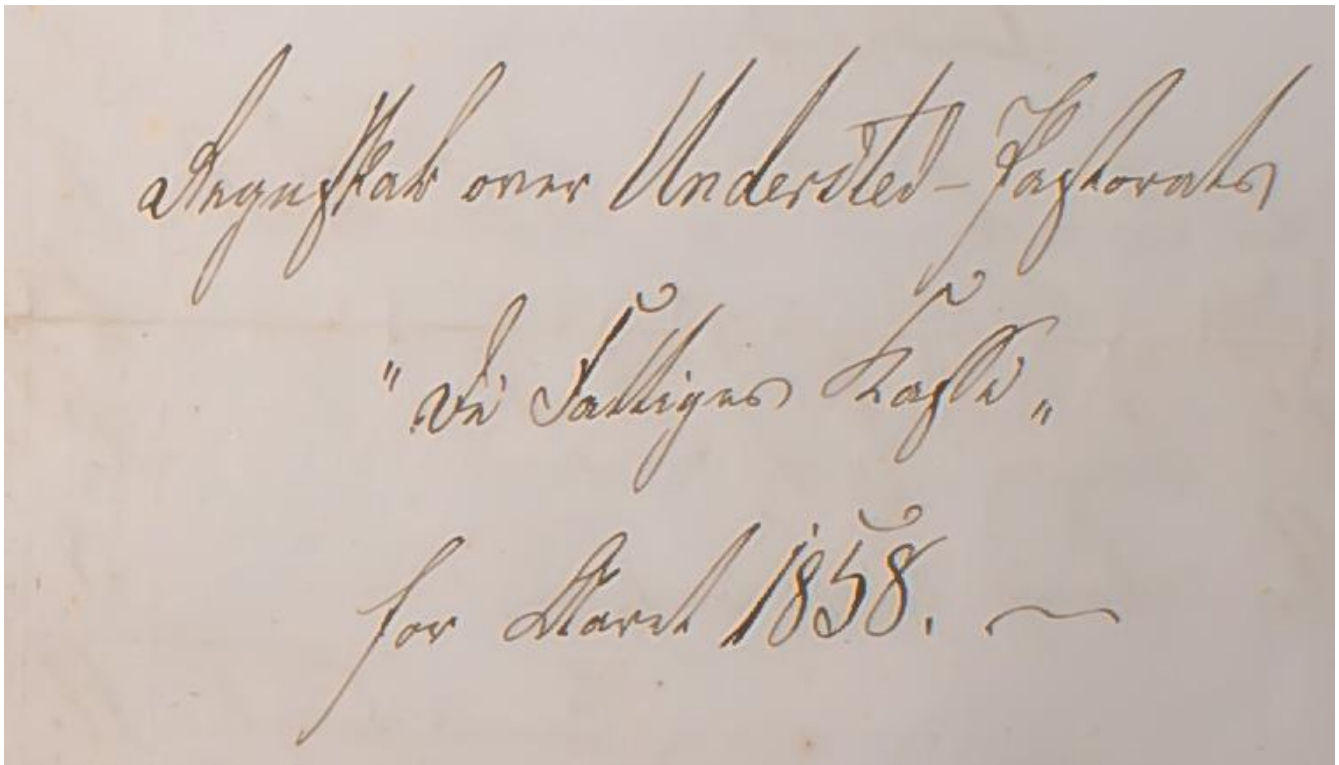 Regnskab over Understed-Pastorats
"De Fattiges Kasse„
for Aaret 1858.